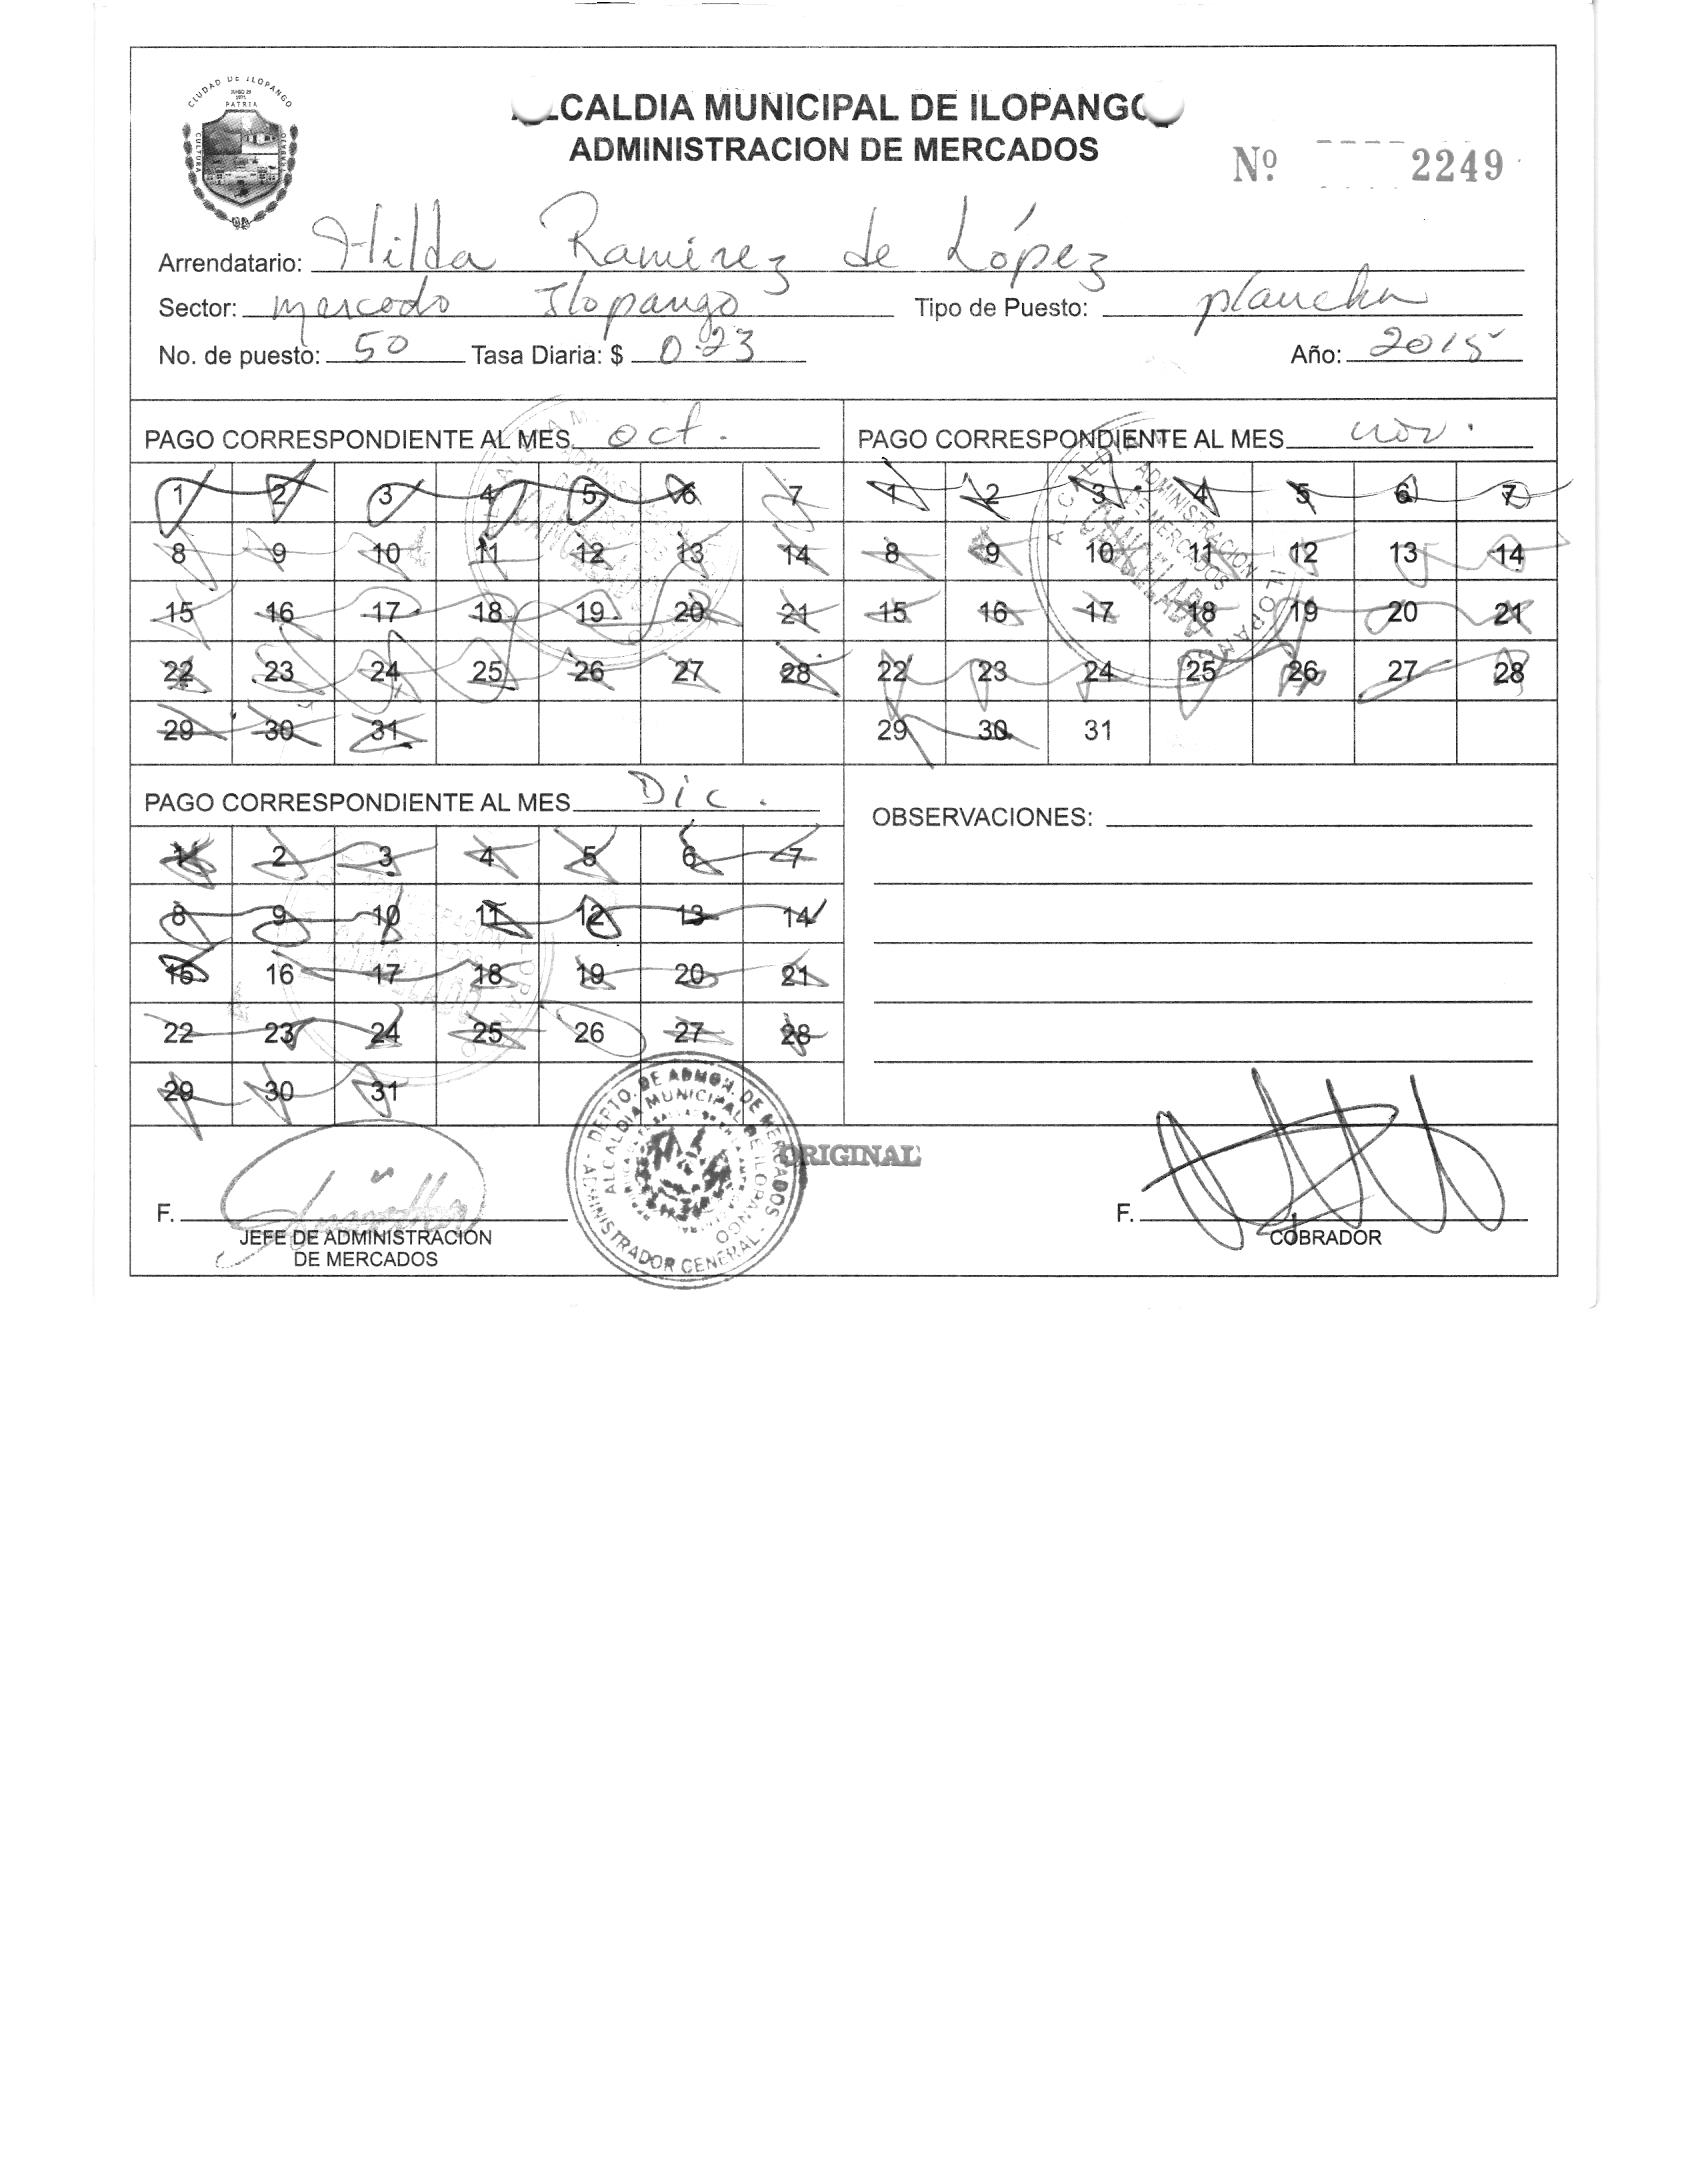 CIUDAD DE ILOPANGO
PATRIA
CULTURA
CALDIA MUNICIPAL DE ILOPANGO
ADMINISTRACION DE MERCADOS
Nº 2249
Arrendatario: Hilda Ramirez de López
Sector: mercado Ilopango Tipo de Puesto: plancha
No. de puesto: 50 Tasa Diaria: $ 0.23 Año: 2015
PAGO CORRESPONDIENTE AL MES oct.
1 2 3 4 5 6 7
8 9 10 11 12 13 14
15 16 17 18 19 20 21
22 23 24 25 26 27 28
29 30 31
PAGO CORRESPONDIENTE AL MES nov.
1 2 3 4 5 6 7
8 9 10 11 12 13 14
15 16 17 18 19 20 21
22 23 24 25 26 27 28
29 30 31
ADMINISTRACION
DE MERCADOS
CANCELADO
PAGO CORRESPONDIENTE AL MES Dic.
1 2 3 4 5 6 7
8 9 10 11 12 13 14
15 16 17 18 19 20 21
22 23 24 25 26 27 28
29 30 31
OBSERVACIONES:
DEPTO. DE ADMON. DE MERCADOS
ALCALDIA MUNICIPAL DE ILOPANGO
ADMINISTRADOR GENERAL
ORIGINAL
F.
JEFE DE ADMINISTRACION
DE MERCADOS
F.
COBRADOR